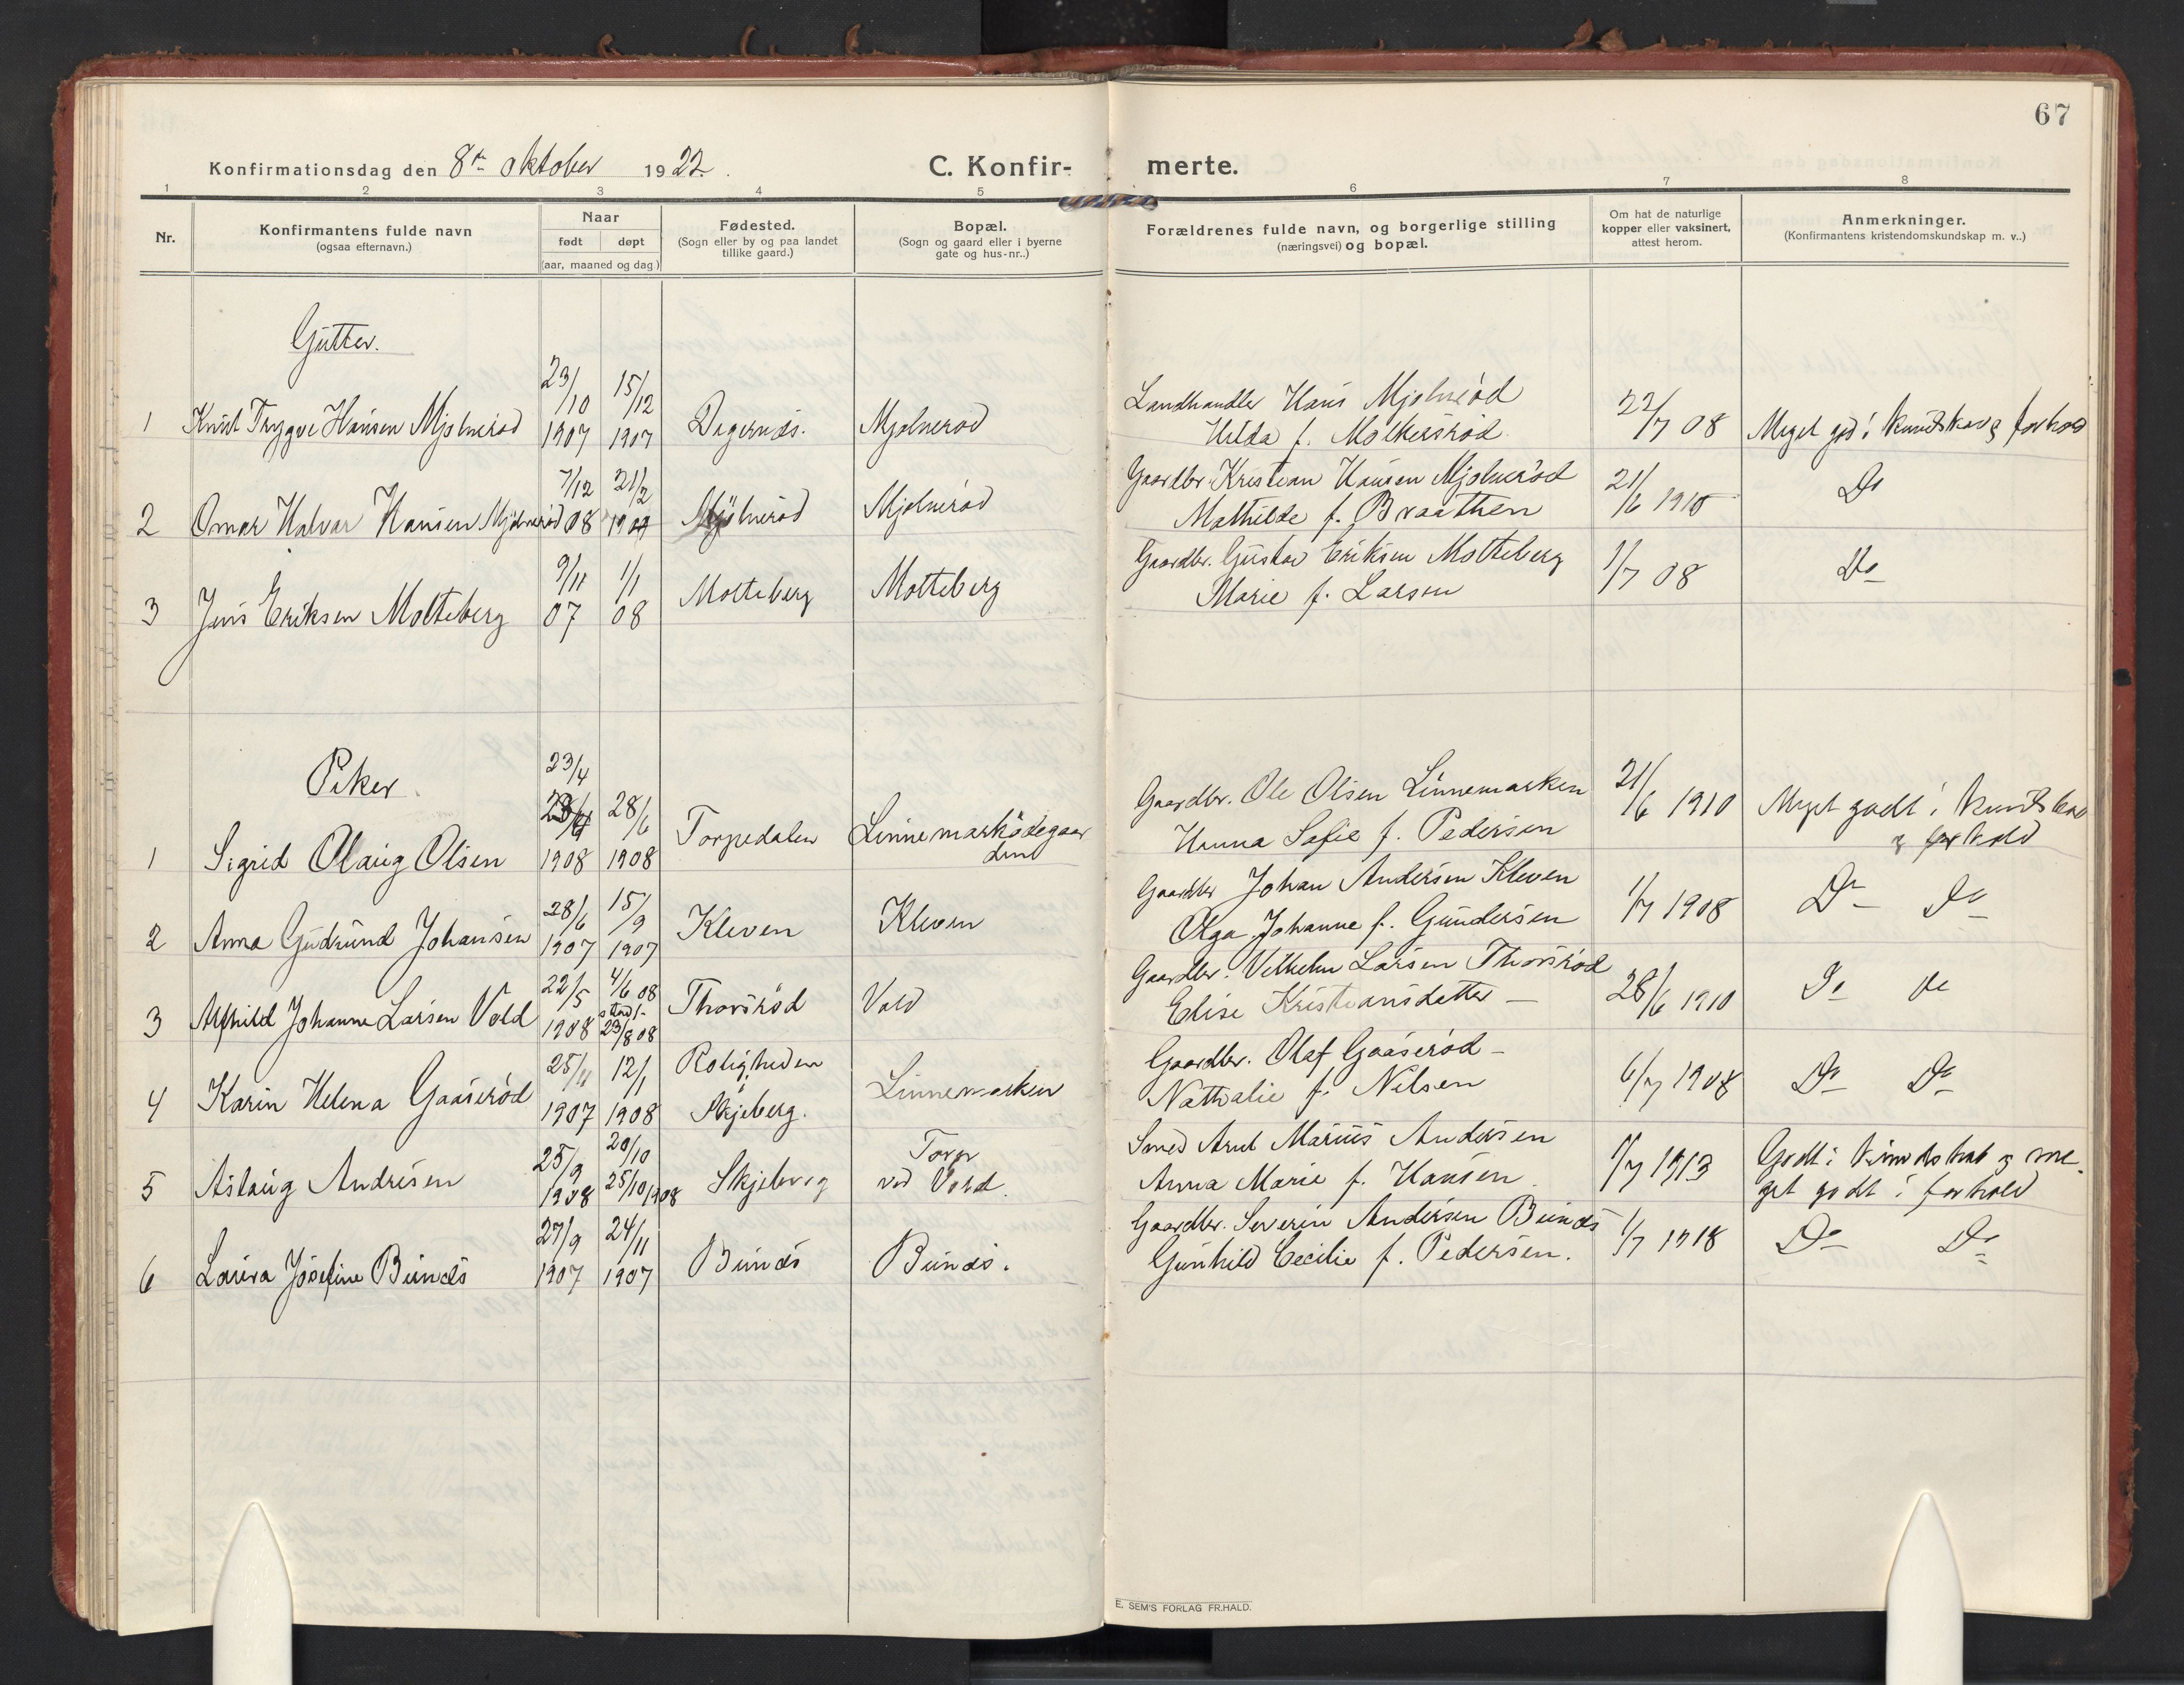 67
Konfirmationsdag den 8de oktober 1922.
C. Konfir- merte.
1 2 3 4 5 6 7 8
Nr.
Konfirmantens fulde navn
(ogsaa efternavn.)
Naar
født døpt
(aar, maaned og dag)
Fødested.
(Sogn eller by og paa landet
tillike gaard.)
Bopæl.
(Sogn og gaard eller i byerne
gate og hus-nr..)
Forældrenes fulde navn, og borgerlige stilling
(næringsvei) og bopæl.
Om hat de naturlige
kopper eller vaksinert,
attest herom.
Anmerkninger.
(Konfirmantens kristendomskundskap m. v..)
Gutter.
1 Knut Trygve Hansen Mjølnerød 23/10 1907 15/12 1907 Degernæs. Mjølnerød
Landhandler Hans Mjølnerød
Hilda f. Molkersrød
22/7 08 Meget god i kundskap og forhold
2 Omar Halvar Hansen Mjølnerød 7/12 08 21/2 1909 Mjølnerød Mjølnerød
Gaardbr. Kristian Hansen Mjølnerød
Mathilde f. Braathen
21/6 1910 Do
3 Jens Eriksen Molteberg 9/11 07 1/1 08 Molteberg Molteberg
Gaardbr. Gustav Eriksen Molteberg
Marie f. Larsen
1/7 08 Do
Piker.
23/4
1 Sigrid Olaug Olsen 1908 28/6 1908 Torpedalen Linnemarködegaar
dene
Gaardbr. Ole Olsen Linnemarken
Hanna Sofie f. Pedersen
21/6 1910 Meget godt i kundskap
og forhold
2 Anna Gudrund Johansen 28/6 1907 15/9 1907 Kleven Kleven
Gaardbr Johan Andersen Kleven
Olga Johanne f. Gundersen
1/7 1908 Do Do
3 Alfhild Johanne Larsen Vold 22/5 1908 4/6 08
stadf.
23/8 08 Thorsrød Vold
Gaardbr. Vilhelm Larsen Thorsrød
Elise Kristiansdatter —
28/6 1910 Do do
4 Karin Helena Gaaserød 25/11 1907 12/1 1908 Roligheden
Skjeberg. Linnemarken
Gaardbr. Olaf Gaaserød —
Nathalie f. Nilsen
6/7 1908 Do Do
5 Aslaug Andresen 25/9 1908 20/10
25/10 1908 Skjeberg Torp
ved Vold
Smed Arnt Marius Andersen
Anna Marie f. Hansen.
1/7 1913 Godt i kundskab og me-
get godt i forhold
6 Laura Josefine Bunæs 27/9 1907 24/11 1907 Bunæs Bunæs.
Gaardbr. Severin Andersen Bunæs
Gunhild Cecilie f. Pedersen.
1/7 1918 Do Do
E. SEM'S FORLAG FR.HALD.